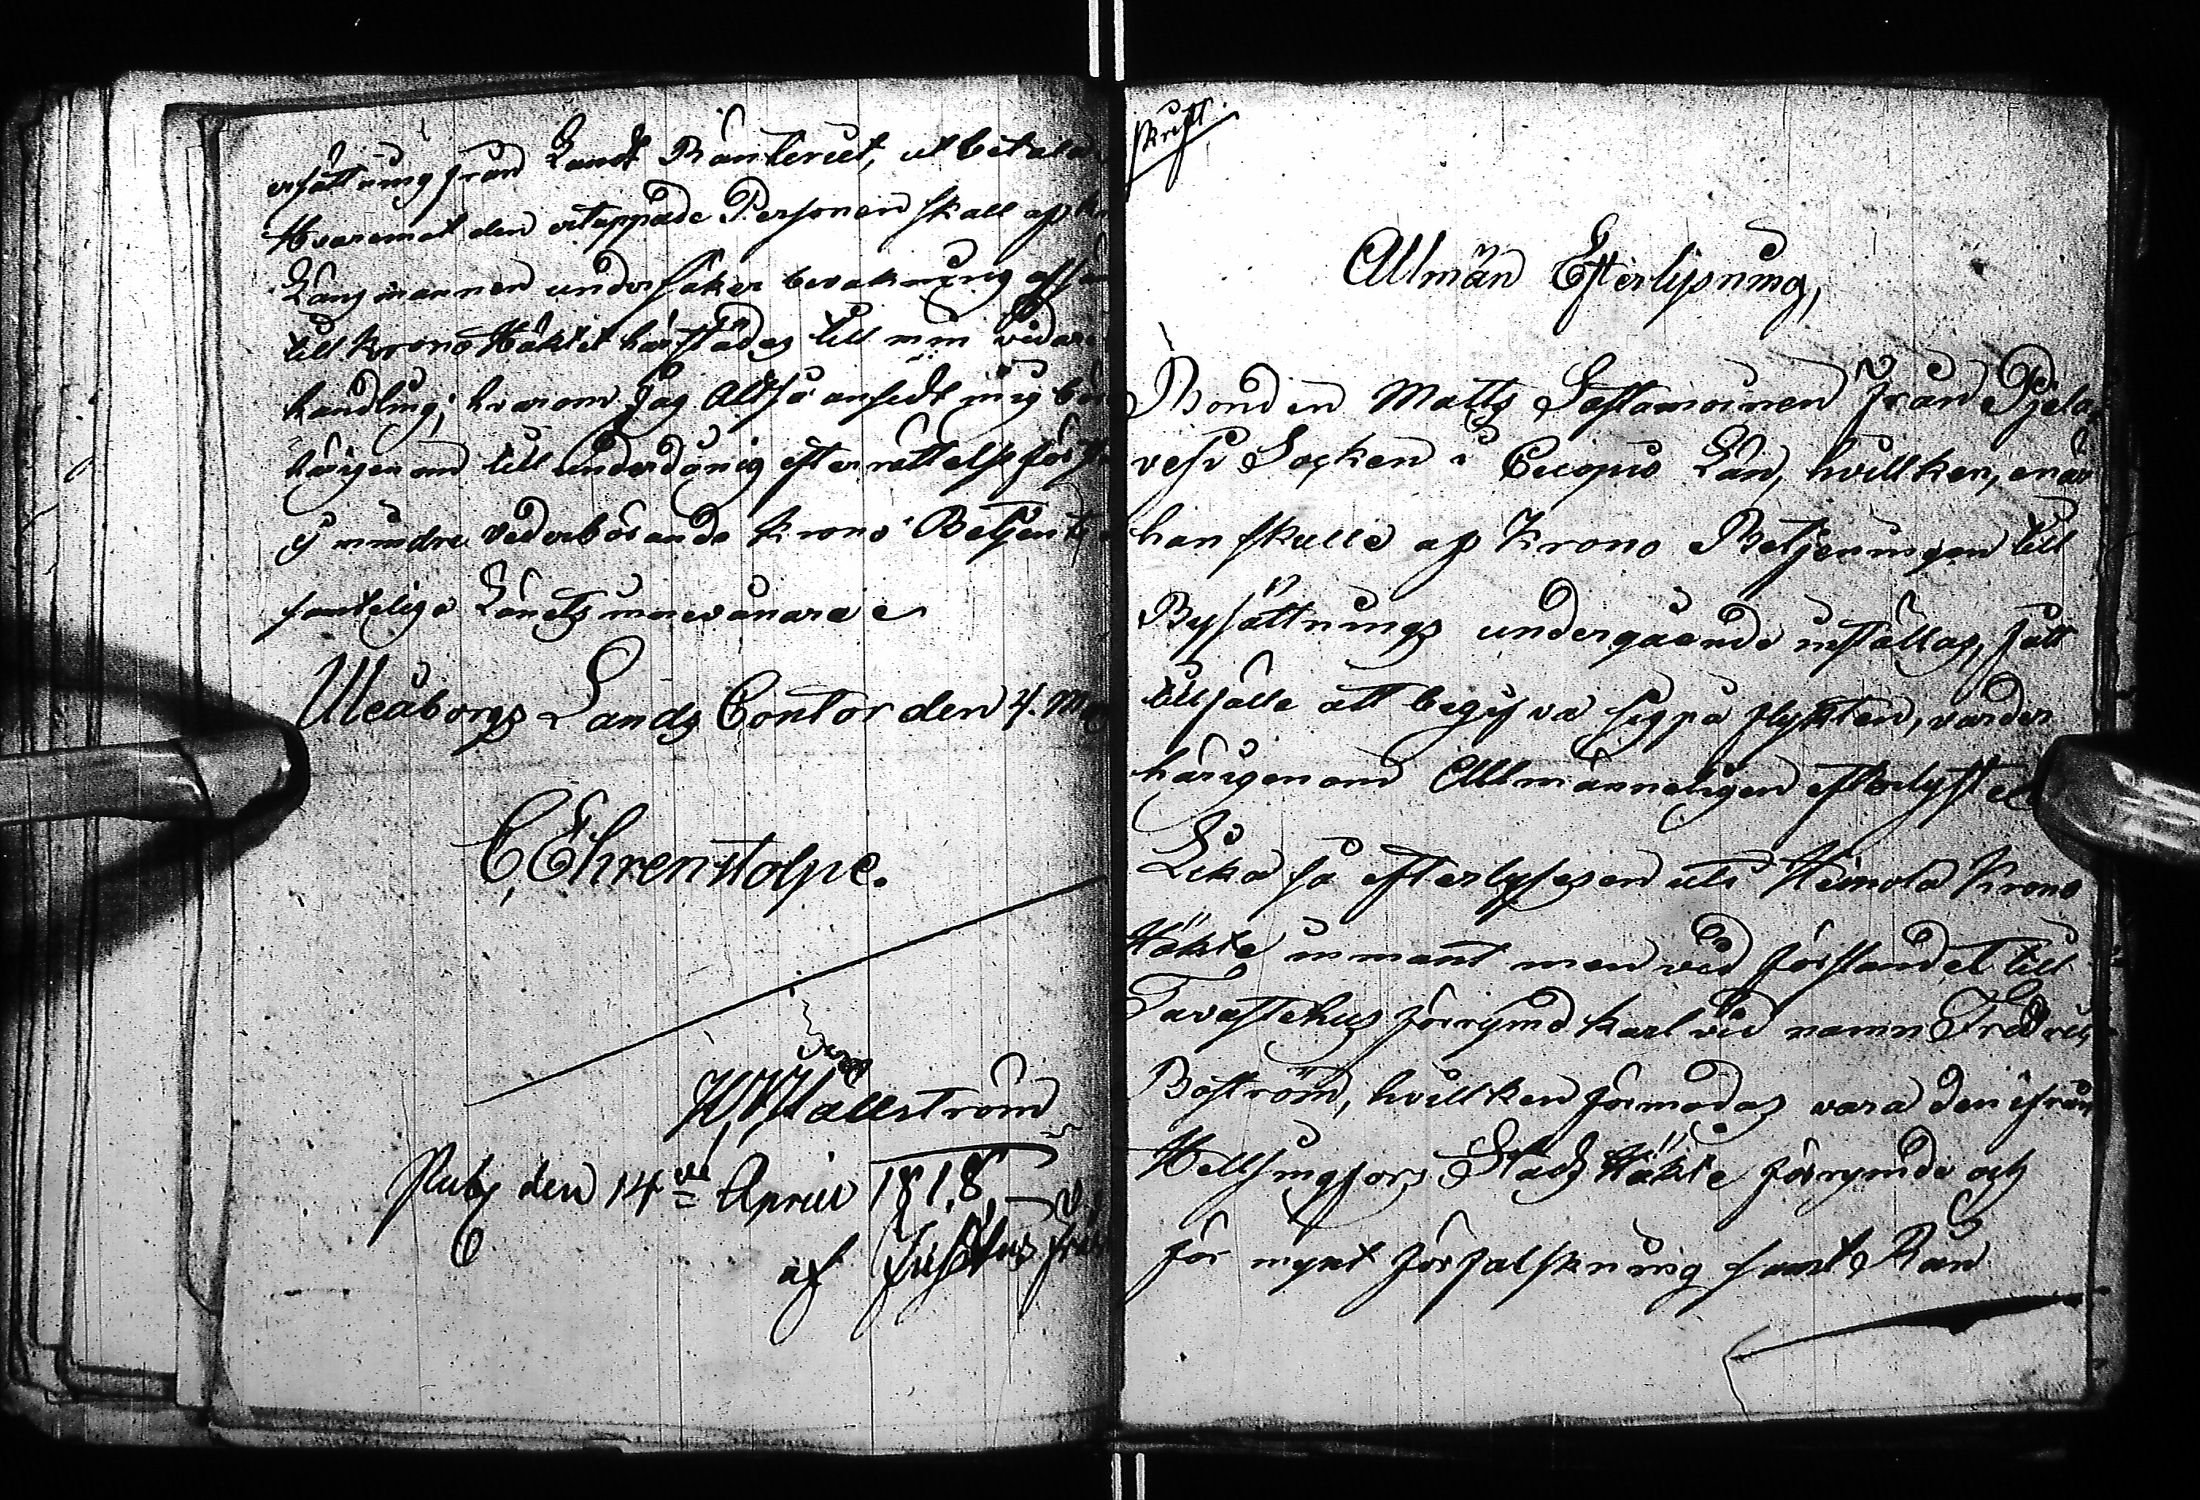 ersättning från Landt Ränteriet, utbetalas
Hvaremot den ertappade Personen skall af
Länsmannen under säker bevakning afsän
till Krono Häktet härstädes till min vidare
handling; hvarom Jag altså ansedt mig bö
härigenom till underdånig efterrättelse för
ej mindre vederbörande Krono Betjente
samtelige Länets innevånare
Uleåborgs Lands Contor den 4. M
C. Ehrenstolpe.
H. W. Hällström
Publ den 14de April 1818.
af
skrift
Allmän Efterlysning,
Bonden Matts Sastamoinen från Pjela
vesi Socken i Cuopio Län, hvillken, enär
han skulle af Krono Betjeningen till
Bysättnings undergående inställas, fått
tillfälle att begifva sig på flykten, varder
härigenom Allmänneligen efterlyst
Lika så efterlyses en uti Heinola Krono
Häkte inmant men vid förslandet till
Tavastehus förrymd karl vid namn Fredric
Boström, hvillken förmodas vara den ifrån
Hellsingfors Stads Häkte förrymde och
för mynt förfalskning samt Rån